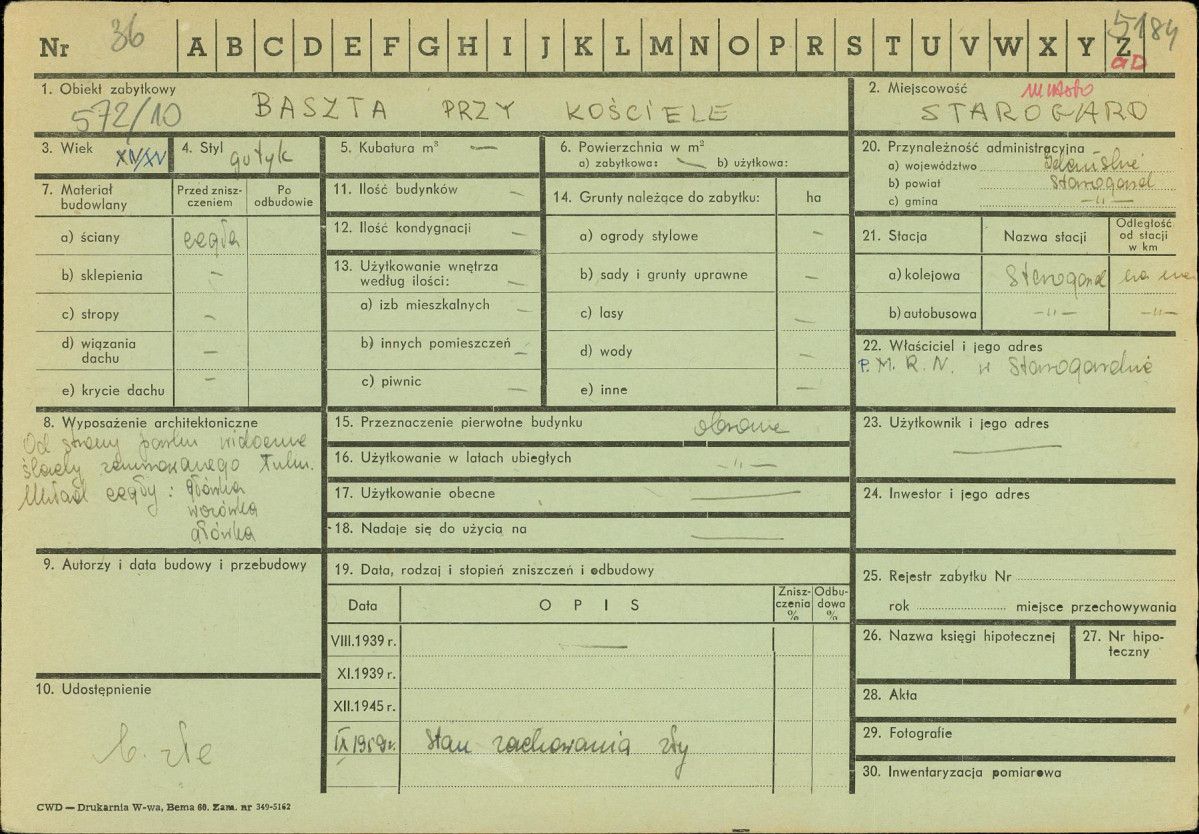 Nr 36 A B C D E F G H I J K L M N O P R S T U V W X Y Z 5184
GD
1. Obiekt zabytkowy
572/10 BASZTA PRZY KOŚCIELE
2. Miejscowość miasto
STAROGARD
3. Wiek XIV/XV
4. Styl gotyk
5. Kubatura m³ —
6. Powierzchnia w m²
a) zabytkowa: — b) użytkowa:
20. Przynależność administracyjna
a) województwo Gdańskie
b) powiat Starogard
c) gmina —"—
7. Materiał budowlany
Przed zniszczeniem
Po odbudowie
a) ściany cegła
b) sklepienia —
c) stropy —
d) wiązania dachu —
e) krycie dachu —
11. Ilość budynków —
12. Ilość kondygnacji —
13. Użytkowanie wnętrza według ilości: —
a) izb mieszkalnych —
b) innych pomieszczeń —
c) piwnic —
14. Grunty należące do zabytku: ha
a) ogrody stylowe —
b) sady i grunty uprawne —
c) lasy —
d) wody —
e) inne —
21. Stacja
Nazwa stacji
Odległość od stacji w km
a) kolejowa Starogard na
b) autobusowa —"— —"—
22. Właściciel i jego adres
P. M. R. N. w Starogardzie
8. Wyposażenie architektoniczne
Od strony parku widoczne
ślady zamurowanego
Układ cegły: główka
wozówka
główka
15. Przeznaczenie pierwotne budynku obronne
16. Użytkowanie w latach ubiegłych —"—
17. Użytkowanie obecne —
18. Nadaje się do użycia na —
23. Użytkownik i jego adres
—
24. Inwestor i jego adres
9. Autorzy i data budowy i przebudowy
19. Data, rodzaj i stopień zniszczeń i odbudowy
Data
OPIS
Zniszczenia %
Odbudowa %
VIII.1939 r. —
XI.1939 r.
XII.1945 r.
IX 1959 r. Stan zachowania zły
25. Rejestr zabytku Nr
rok miejsce przechowywania
26. Nazwa księgi hipotecznej
27. Nr hipoteczny
28. Akta
29. Fotografie
30. Inwentaryzacja pomiarowa
10. Udostępnienie
b. złe
CWD — Drukarnia W-wa, Bema 60. Zam. nr 349-5162